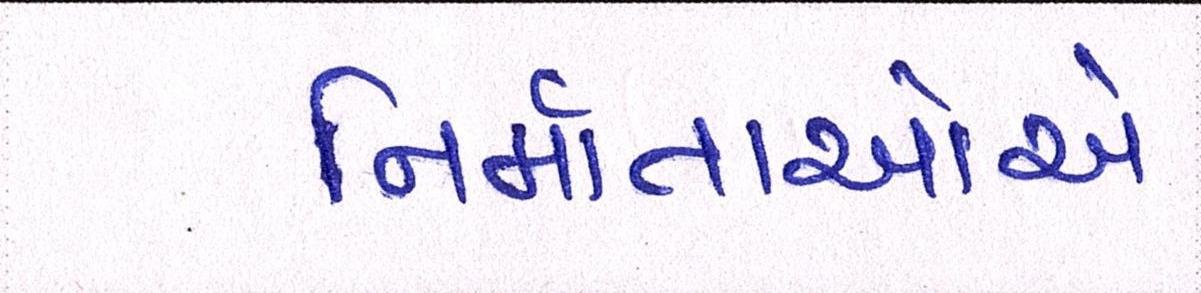 નિર્માતાઓએ